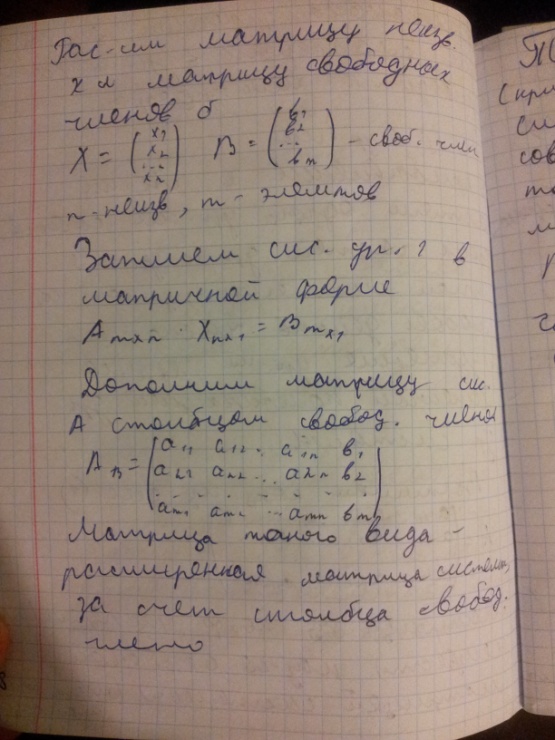 Рас-им матрицу неизв.
X и матрицу свободных
членов б
X = (x₁ x₂ ... xₙ) B = (b₁ b₂ ... bₘ) - своб. член
n - неизв, m - элемтов
Запишем сис. ур. 1 в
матричной форме
Aₘₓₙ · Xₙₓ₁ = Bₘₓ₁
Дополним матрицу сис.
A столбцом свобод. членов
a₁₁ a₁₂ . a₁ₙ b₁
A_B = a₂₁ a₂₂ ... a₂ₙ b₂
aₘ₁ aₘ₂ ... aₘₙ bₘ
Матрица такого вида -
расширенная матрица системы,
за счет столбца свобод.
члено
(кри
си
сов